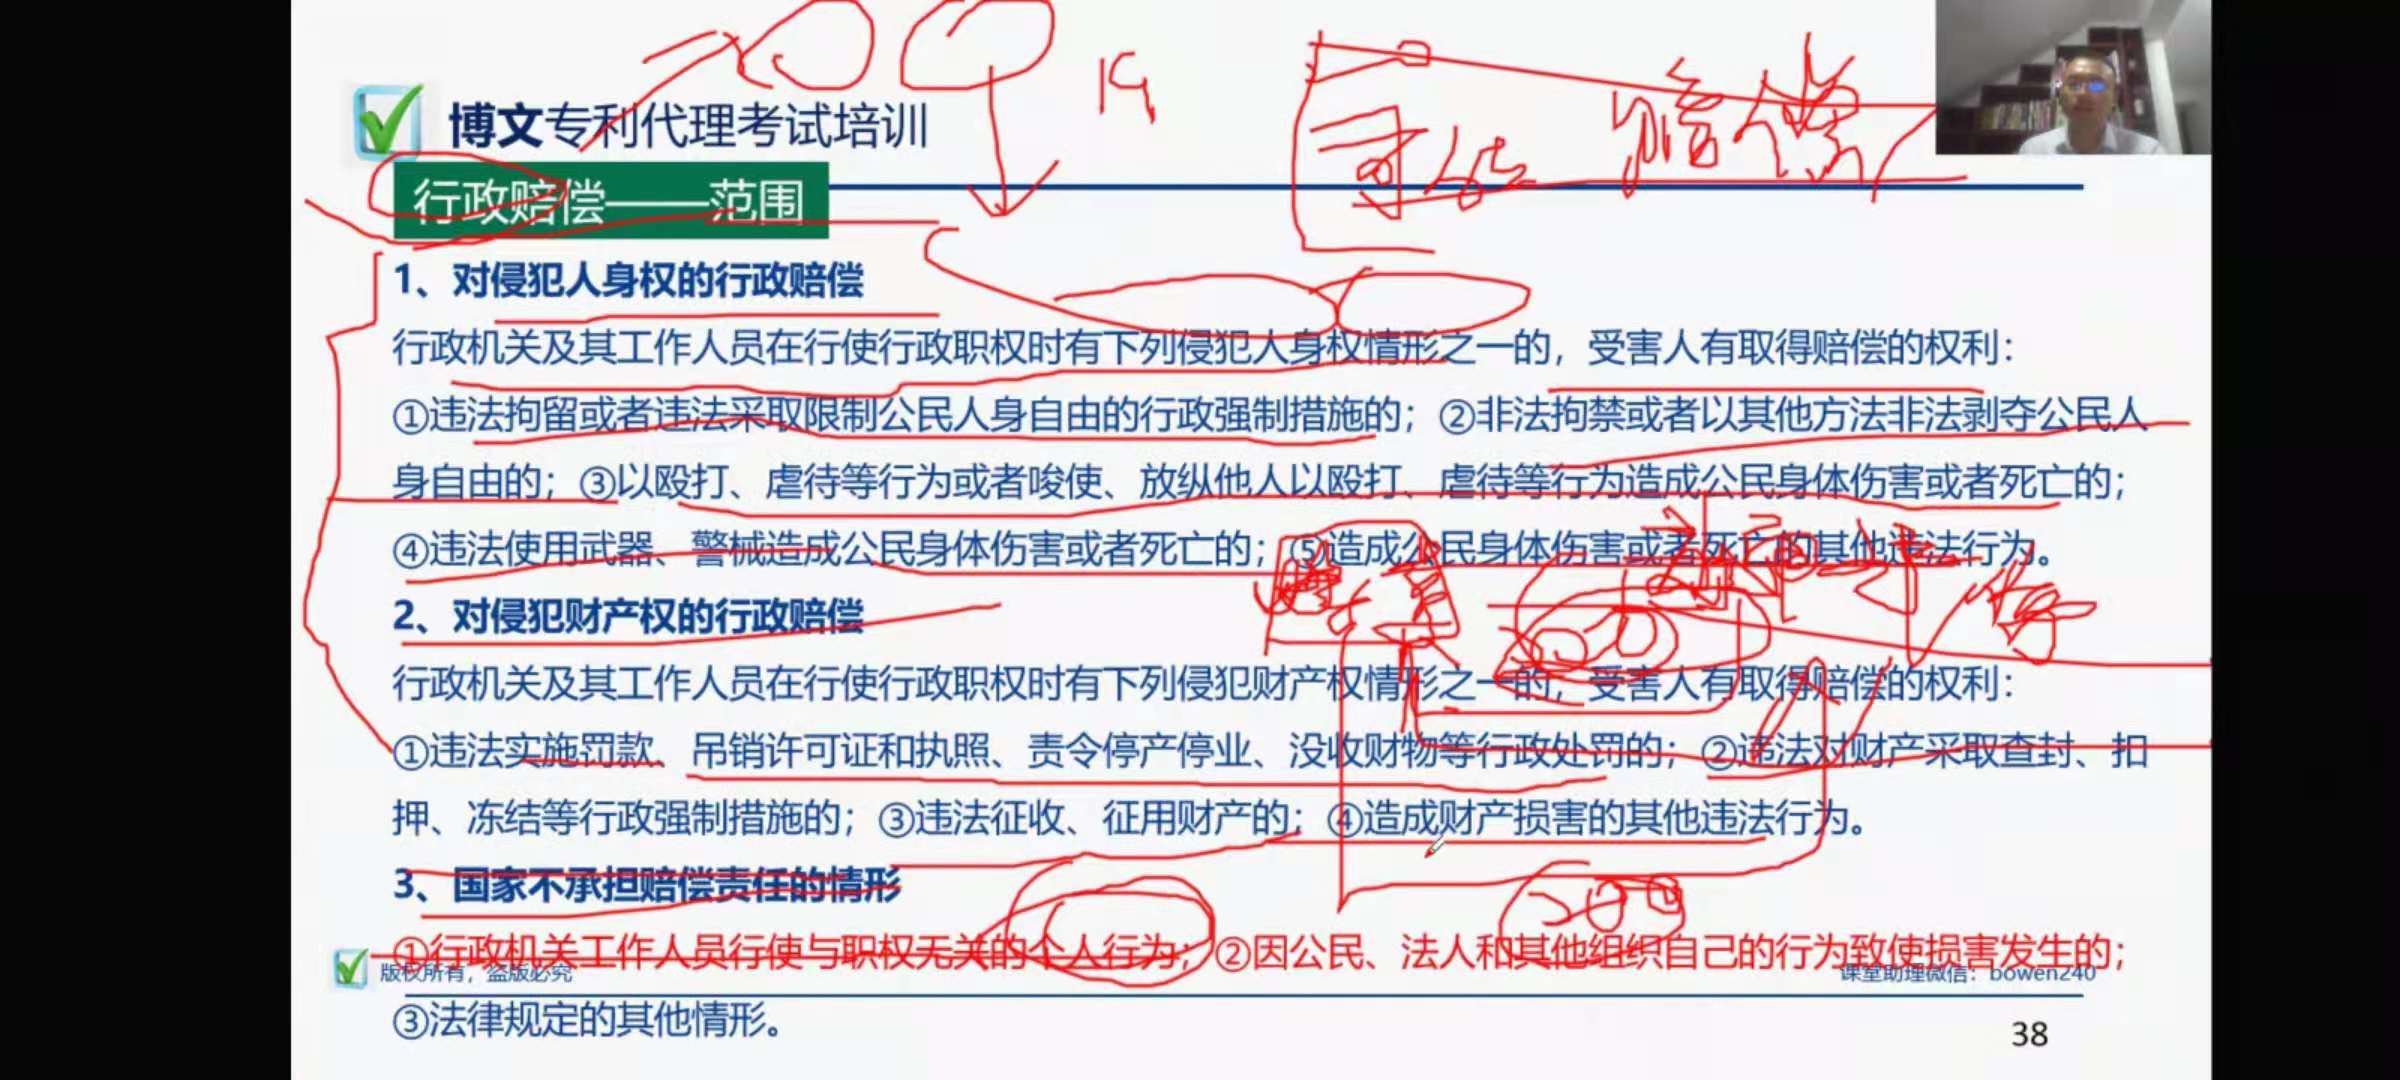 博文专利代理考试培训
行政赔偿——范围
司法 赔偿
1、对侵犯人身权的行政赔偿
行政机关及其工作人员在行使行政职权时有下列侵犯人身权情形之一的，受害人有取得赔偿的权利：
①违法拘留或者违法采取限制公民人身自由的行政强制措施的；②非法拘禁或者以其他方法非法剥夺公民人
身自由的；③以殴打、虐待等行为或者唆使、放纵他人以殴打、虐待等行为造成公民身体伤害或者死亡的；
④违法使用武器、警械造成公民身体伤害或者死亡的；⑤造成公民身体伤害或者死亡的其他违法行为。
2、对侵犯财产权的行政赔偿
行政机关及其工作人员在行使行政职权时有下列侵犯财产权情形之一的，受害人有取得赔偿的权利：
①违法实施罚款、吊销许可证和执照、责令停产停业、没收财物等行政处罚的；②违法对财产采取查封、扣
押、冻结等行政强制措施的；③违法征收、征用财产的；④造成财产损害的其他违法行为。
3、国家不承担赔偿责任的情形
200
①行政机关工作人员行使与职权无关的个人行为；②因公民、法人和其他组织自己的行为致使损害发生的；
版权所有，盗版必究
课堂助理微信：bowen240
③法律规定的其他情形。
38